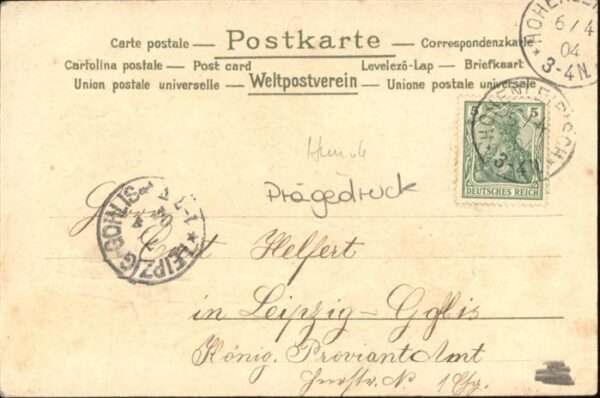 Carte postale — Postkarte — Correspondenzkarte
Cartolina postale — Post card Levelező-Lap — Briefkaart
Union postale universelle — Weltpostverein — Unione postale universale
HOHENLEI
6/4
04
3-4N.
5 5
DEUTSCHES REICH
3-4N
Hunde
Prägedruck
LEIPZIG-GOHLIS
Helfert
in Leipzig-Gohlis
König. Proviant Amt